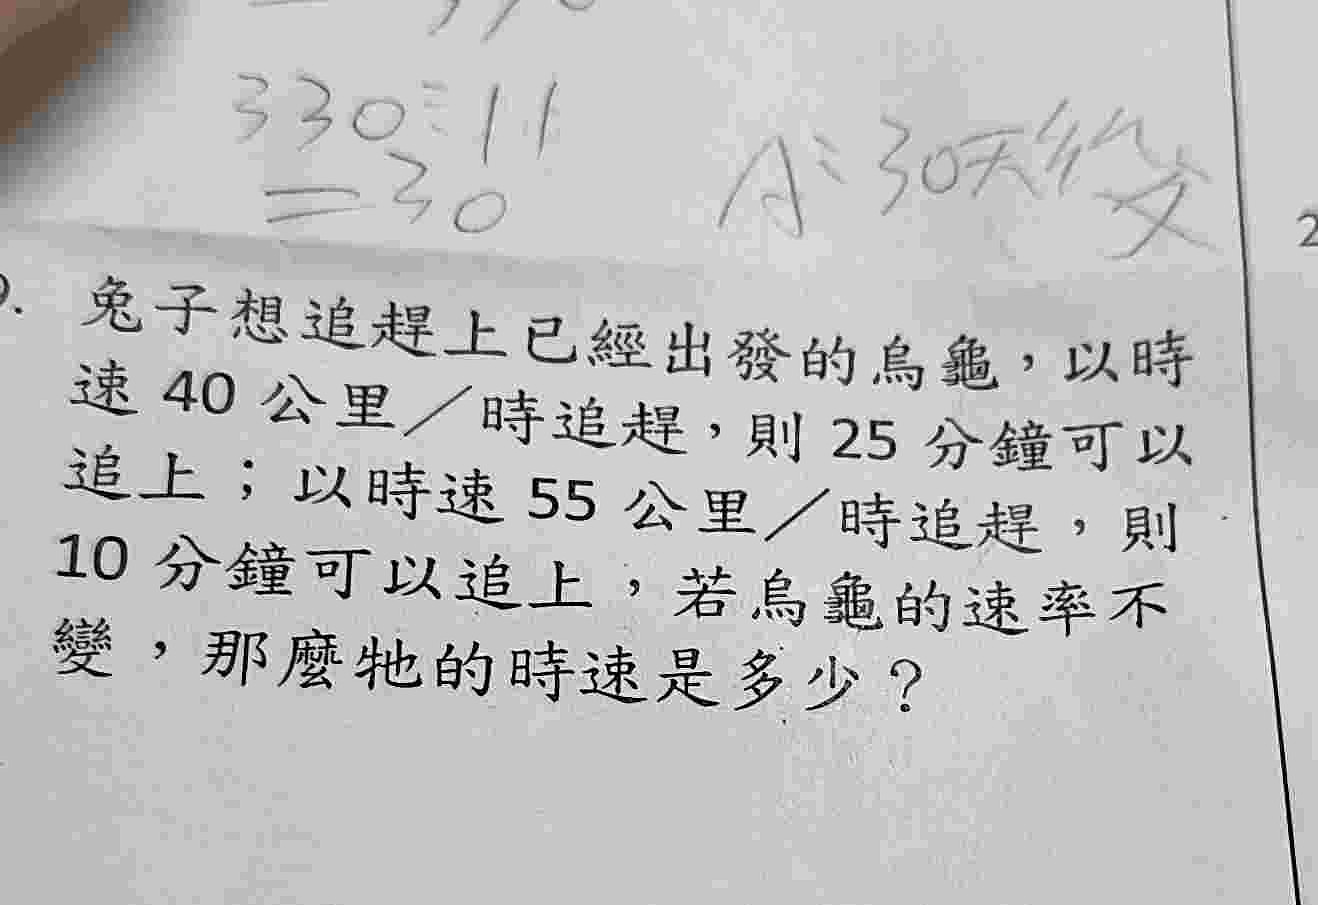 330÷11
=30
A:30天後
兔子想追趕上已經出發的烏龜，以時
速 40 公里／時追趕，則 25 分鐘可以
追上；以時速 55 公里／時追趕，則
10 分鐘可以追上，若烏龜的速率不
變，那麼牠的時速是多少？
2